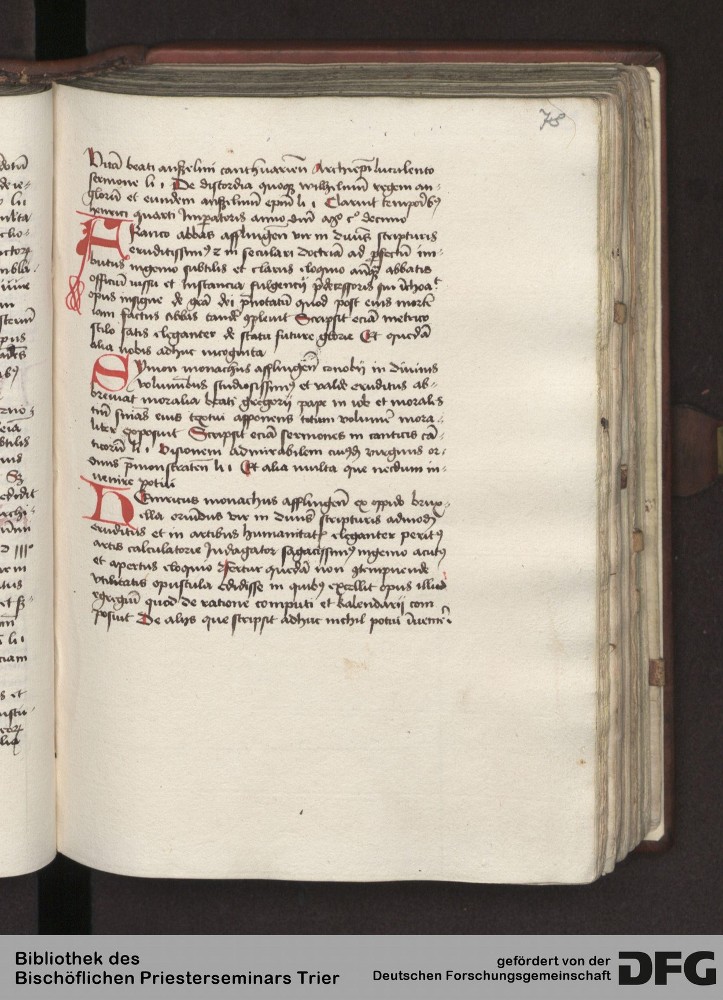 78
Vitā beati anselmi canthuarien̄ Archiep̄i luculento
sermone li i De discordia quoqꝫ wilhelmi regem an-
glorū et eundem anselmū ep̄m li i Claruit temporibꝰ
henrici quarti Imꝑatoris anno dn̄i
Franco abbas afflingen̄ vir in diuīs scripturis
eruditissimꝰ ⁊ in seculari doctrīa ad ꝑfectū im-
butus ingenio subtilis et clarus eloquio abbatis
officiū iussu et instancia fulgencij p̄decessoris sui
opus insigne de grā dei p̄notatū quod post eius mortē
iam factus abbas tandē ꝯpleuit Scripsit eciā metrico
stilo satis eleganter de statu future glorie Et quedā
alia nobis adhuc incognita
Symon monachus afflingen̄ cenobij in diuinis
voluminibus studiosissimꝰ et valde eruditus ab-
breuiat moralia beati gregorij pape in iob et moralis
tm̄ sn̄ias eius textui apponens totum volumē mora-
liter exposuit Scripsit eciā sermones in cantica cā-
ticorū li i Visionem admirabilem cuiusdā virginis or-
dinis p̄monstraten̄ li i Et alia multa que necdum in-
uenire potui
Henricus monachus afflingen̄ ex opido brux-
ella oriūdus vir in diuīs scripturis admodū
eruditus et in artibus humanitatꝭ eleganter peritꝰ
artis calculatorie Indagator sagacissimꝰ ingenio acutꝰ
et apertus eloquio Fertur quedā non ꝯtempnende
vtilitatis opuscula edidisse in quibꝰ excellit opus illud
egregiū quod de ratione computi et kalendarij com
posuit De alijs que scripsit adhuc nichil potui īuenire
Bibliothek des
Bischöflichen Priesterseminars Trier
gefördert von der
Deutschen Forschungsgemeinschaft DFG